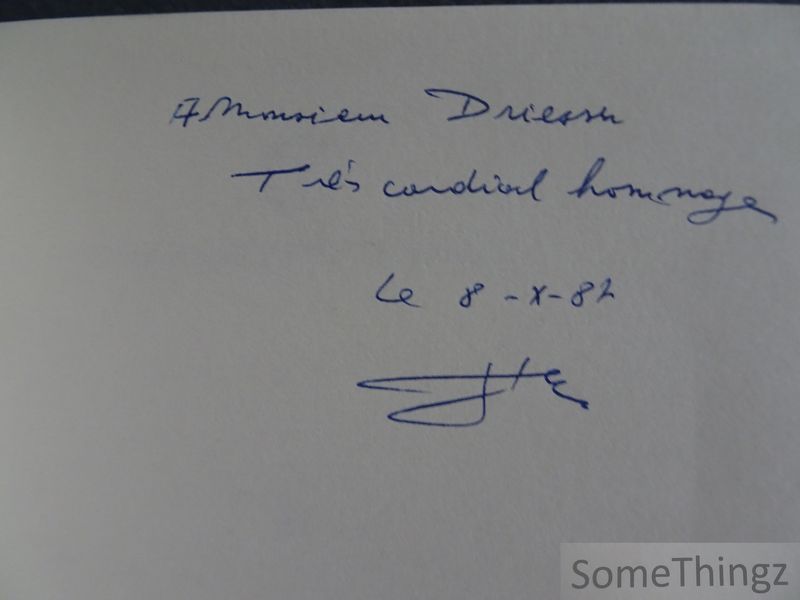 A Monsieur Driessen
Très cordial hommage
Le 8-X-82
SomeThingz